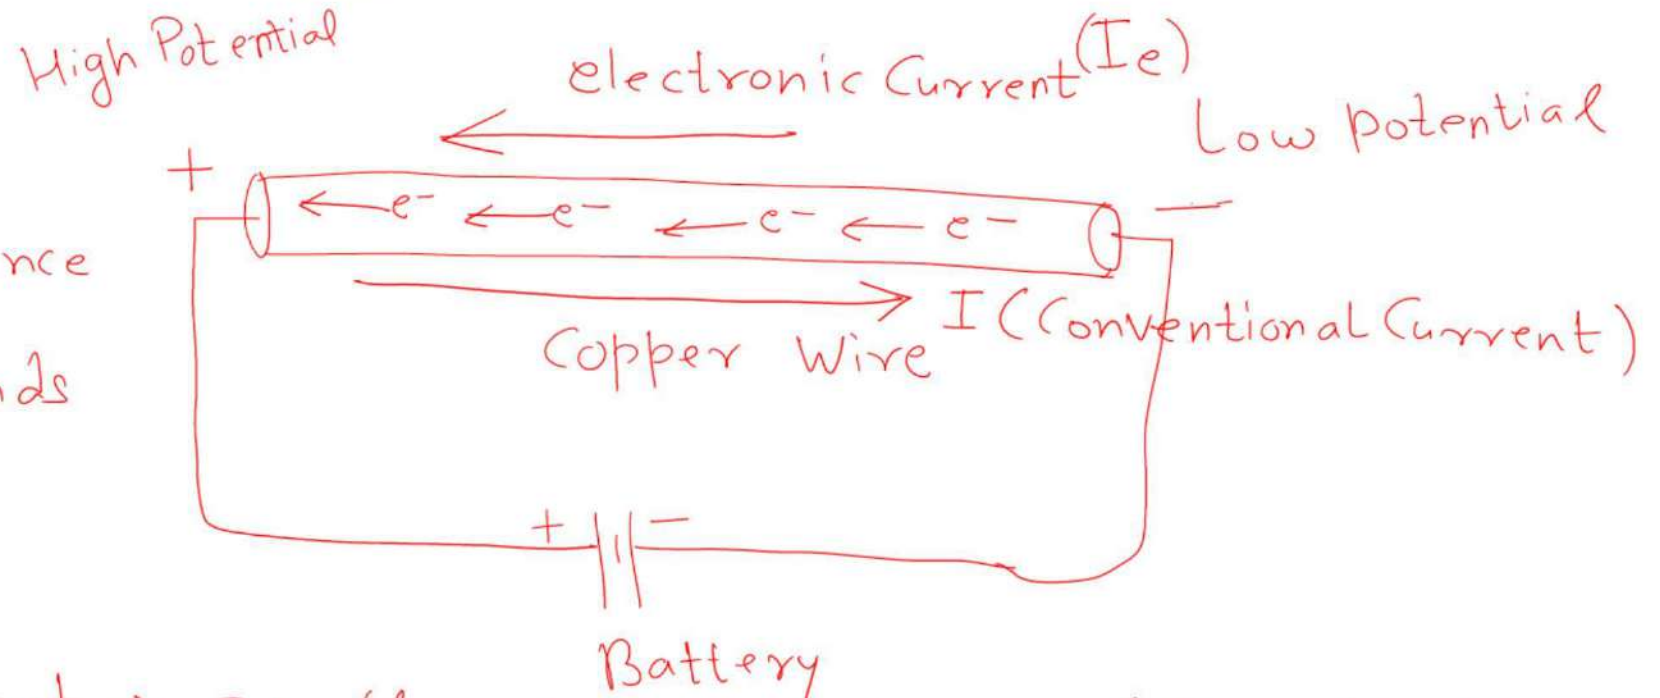 High Potential
electronic Current (Ie)
Low potential
+
e- e- e- e-
-
nce
I (Conventional Current)
Copper Wire
ds
+ -
Battery